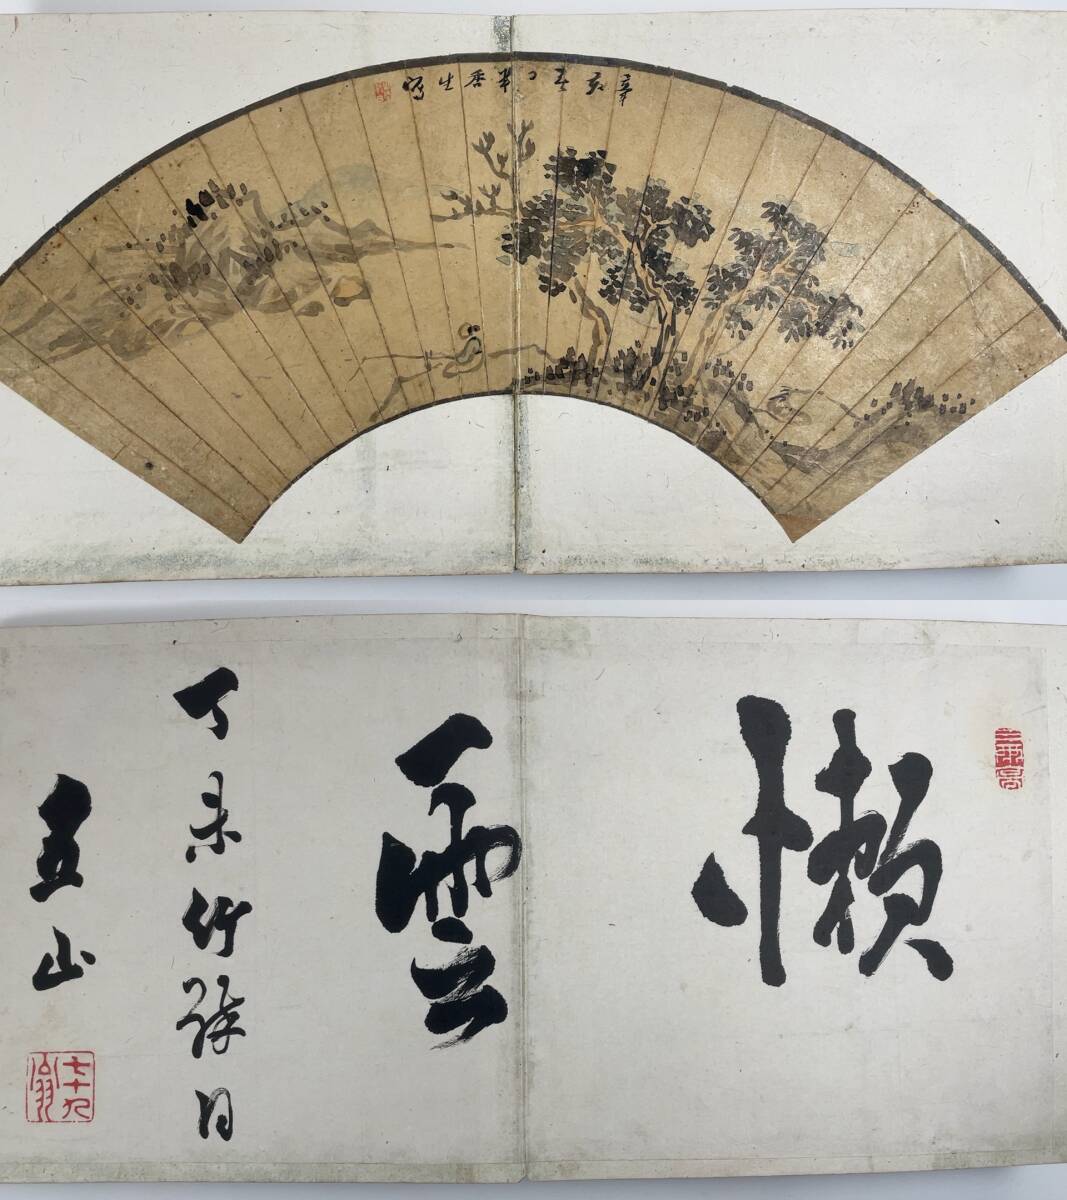 辛亥春日半香生寫
懶雲
丁未竹醉日
五山
七十九翁